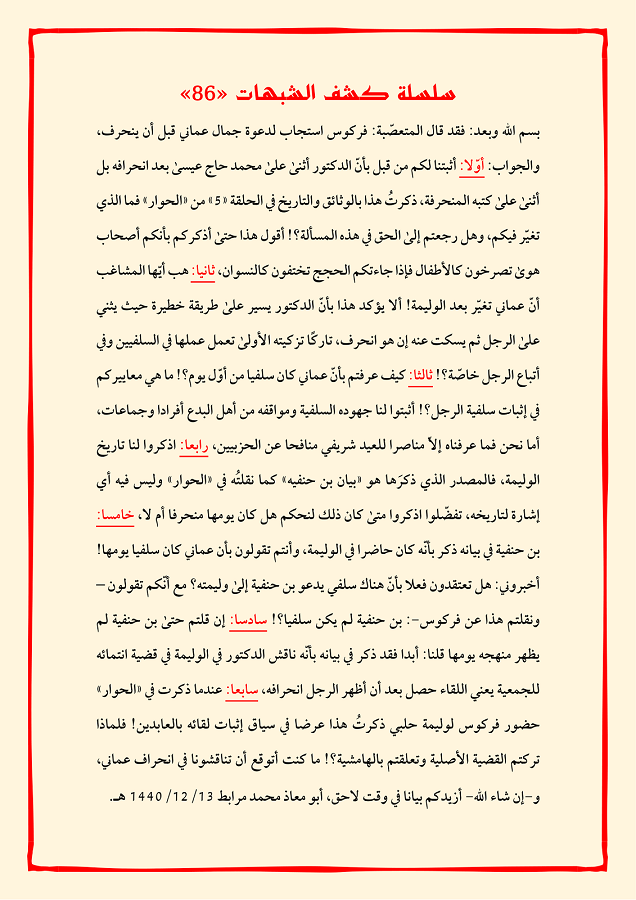 سلسلة كشف الشبهات «86»
بسم الله وبعد: فقد قال المتعصّبة: فركوس استجاب لدعوة جمال عماني قبل أن ينحرف،
والجواب: أوّلا: أثبتنا لكم من قبل بأنّ الدكتور أثنىٰ علىٰ محمد حاج عيسىٰ بعد انحرافه بل
أثنىٰ علىٰ كتبه المنحرفة، ذكرتُ هذا بالوثائق والتاريخ في الحلقة «5» من «الحوار» فما الذي
تغيّر فيكم، وهل رجعتم إلىٰ الحق في هذه المسألة؟! أقول هذا حتىٰ أذكركم بأنكم أصحاب
هوىٰ تصرخون كالأطفال فإذا جاءتكم الحجج تختفون كالنسوان، ثانيا: هب أيّها المشاغب
أنّ عماني تغيّر بعد الوليمة! ألا يؤكد هذا بأنّ الدكتور يسير علىٰ طريقة خطيرة حيث يثني
علىٰ الرجل ثم يسكت عنه إن هو انحرف، تاركًا تزكيته الأولىٰ تعمل عملها في السلفيين وفي
أتباع الرجل خاصّة؟! ثالثا: كيف عرفتم بأنّ عماني كان سلفيا من أوّل يوم؟! ما هي معاييركم
في إثبات سلفية الرجل؟! أثبتوا لنا جهوده السلفية ومواقفه من أهل البدع أفرادا وجماعات،
أما نحن فما عرفناه إلاّ مناصرا للعيد شريفي منافحا عن الحزبيين، رابعا: اذكروا لنا تاريخ
الوليمة، فالمصدر الذي ذكرَها هو «بيان بن حنفيه» كما نقلتُه في «الحوار» وليس فيه أي
إشارة لتاريخه، تفضّلوا اذكروا متىٰ كان ذلك لنحكم هل كان يومها منحرفا أم لا، خامسا:
بن حنفية في بيانه ذكر بأنّه كان حاضرا في الوليمة، وأنتم تقولون بأن عماني كان سلفيا يومها!
أخبروني: هل تعتقدون فعلا بأنّ هناك سلفي يدعو بن حنفية إلىٰ وليمته؟ مع أنّكم تقولون –
ونقلتم هذا عن فركوس-: بن حنفية لم يكن سلفيا؟! سادسا: إن قلتم حتىٰ بن حنفية لم
يظهر منهجه يومها قلنا: أبدا فقد ذكر في بيانه بأنّه ناقش الدكتور في الوليمة في قضية انتمائه
للجمعية يعني اللقاء حصل بعد أن أظهر الرجل انحرافه، سابعا: عندما ذكرت في «الحوار»
حضور فركوس لوليمة حلبي ذكرتُ هذا عرضا في سياق إثبات لقائه بالعابدين! فلماذا
تركتم القضية الأصلية وتعلقتم بالهامشية؟! ما كنت أتوقع أن تناقشونا في انحراف عماني،
و-إن شاء الله- أزيدكم بيانا في وقت لاحق، أبو معاذ محمد مرابط 13/ 12/ 1440 هـ.